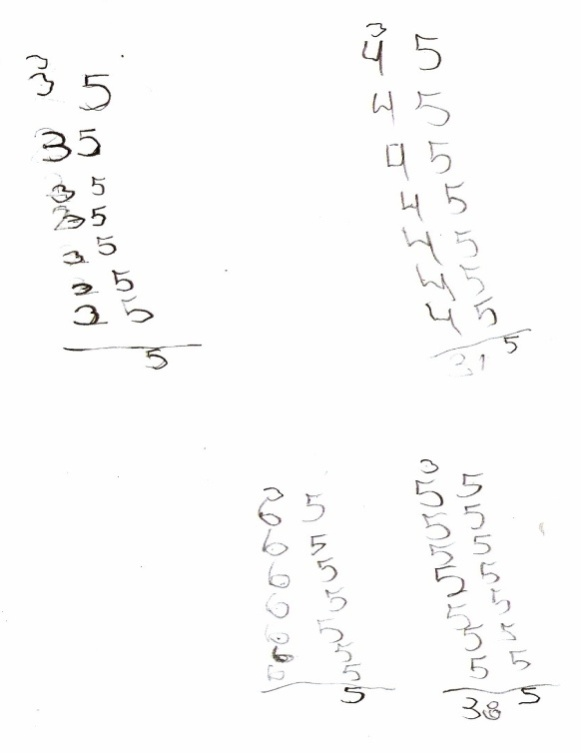 3
3 5
3 5
3 5
3 5
3 5
3 5
3 5
5
3
4 5
4 5
4 5
4 5
4 5
4 5
4 5
31 5
3
6 5
6 5
6 5
6 5
6 5
6 5
6 5
5
3
5 5
5 5
5 5
5 5
5 5
5 5
5 5
38 5